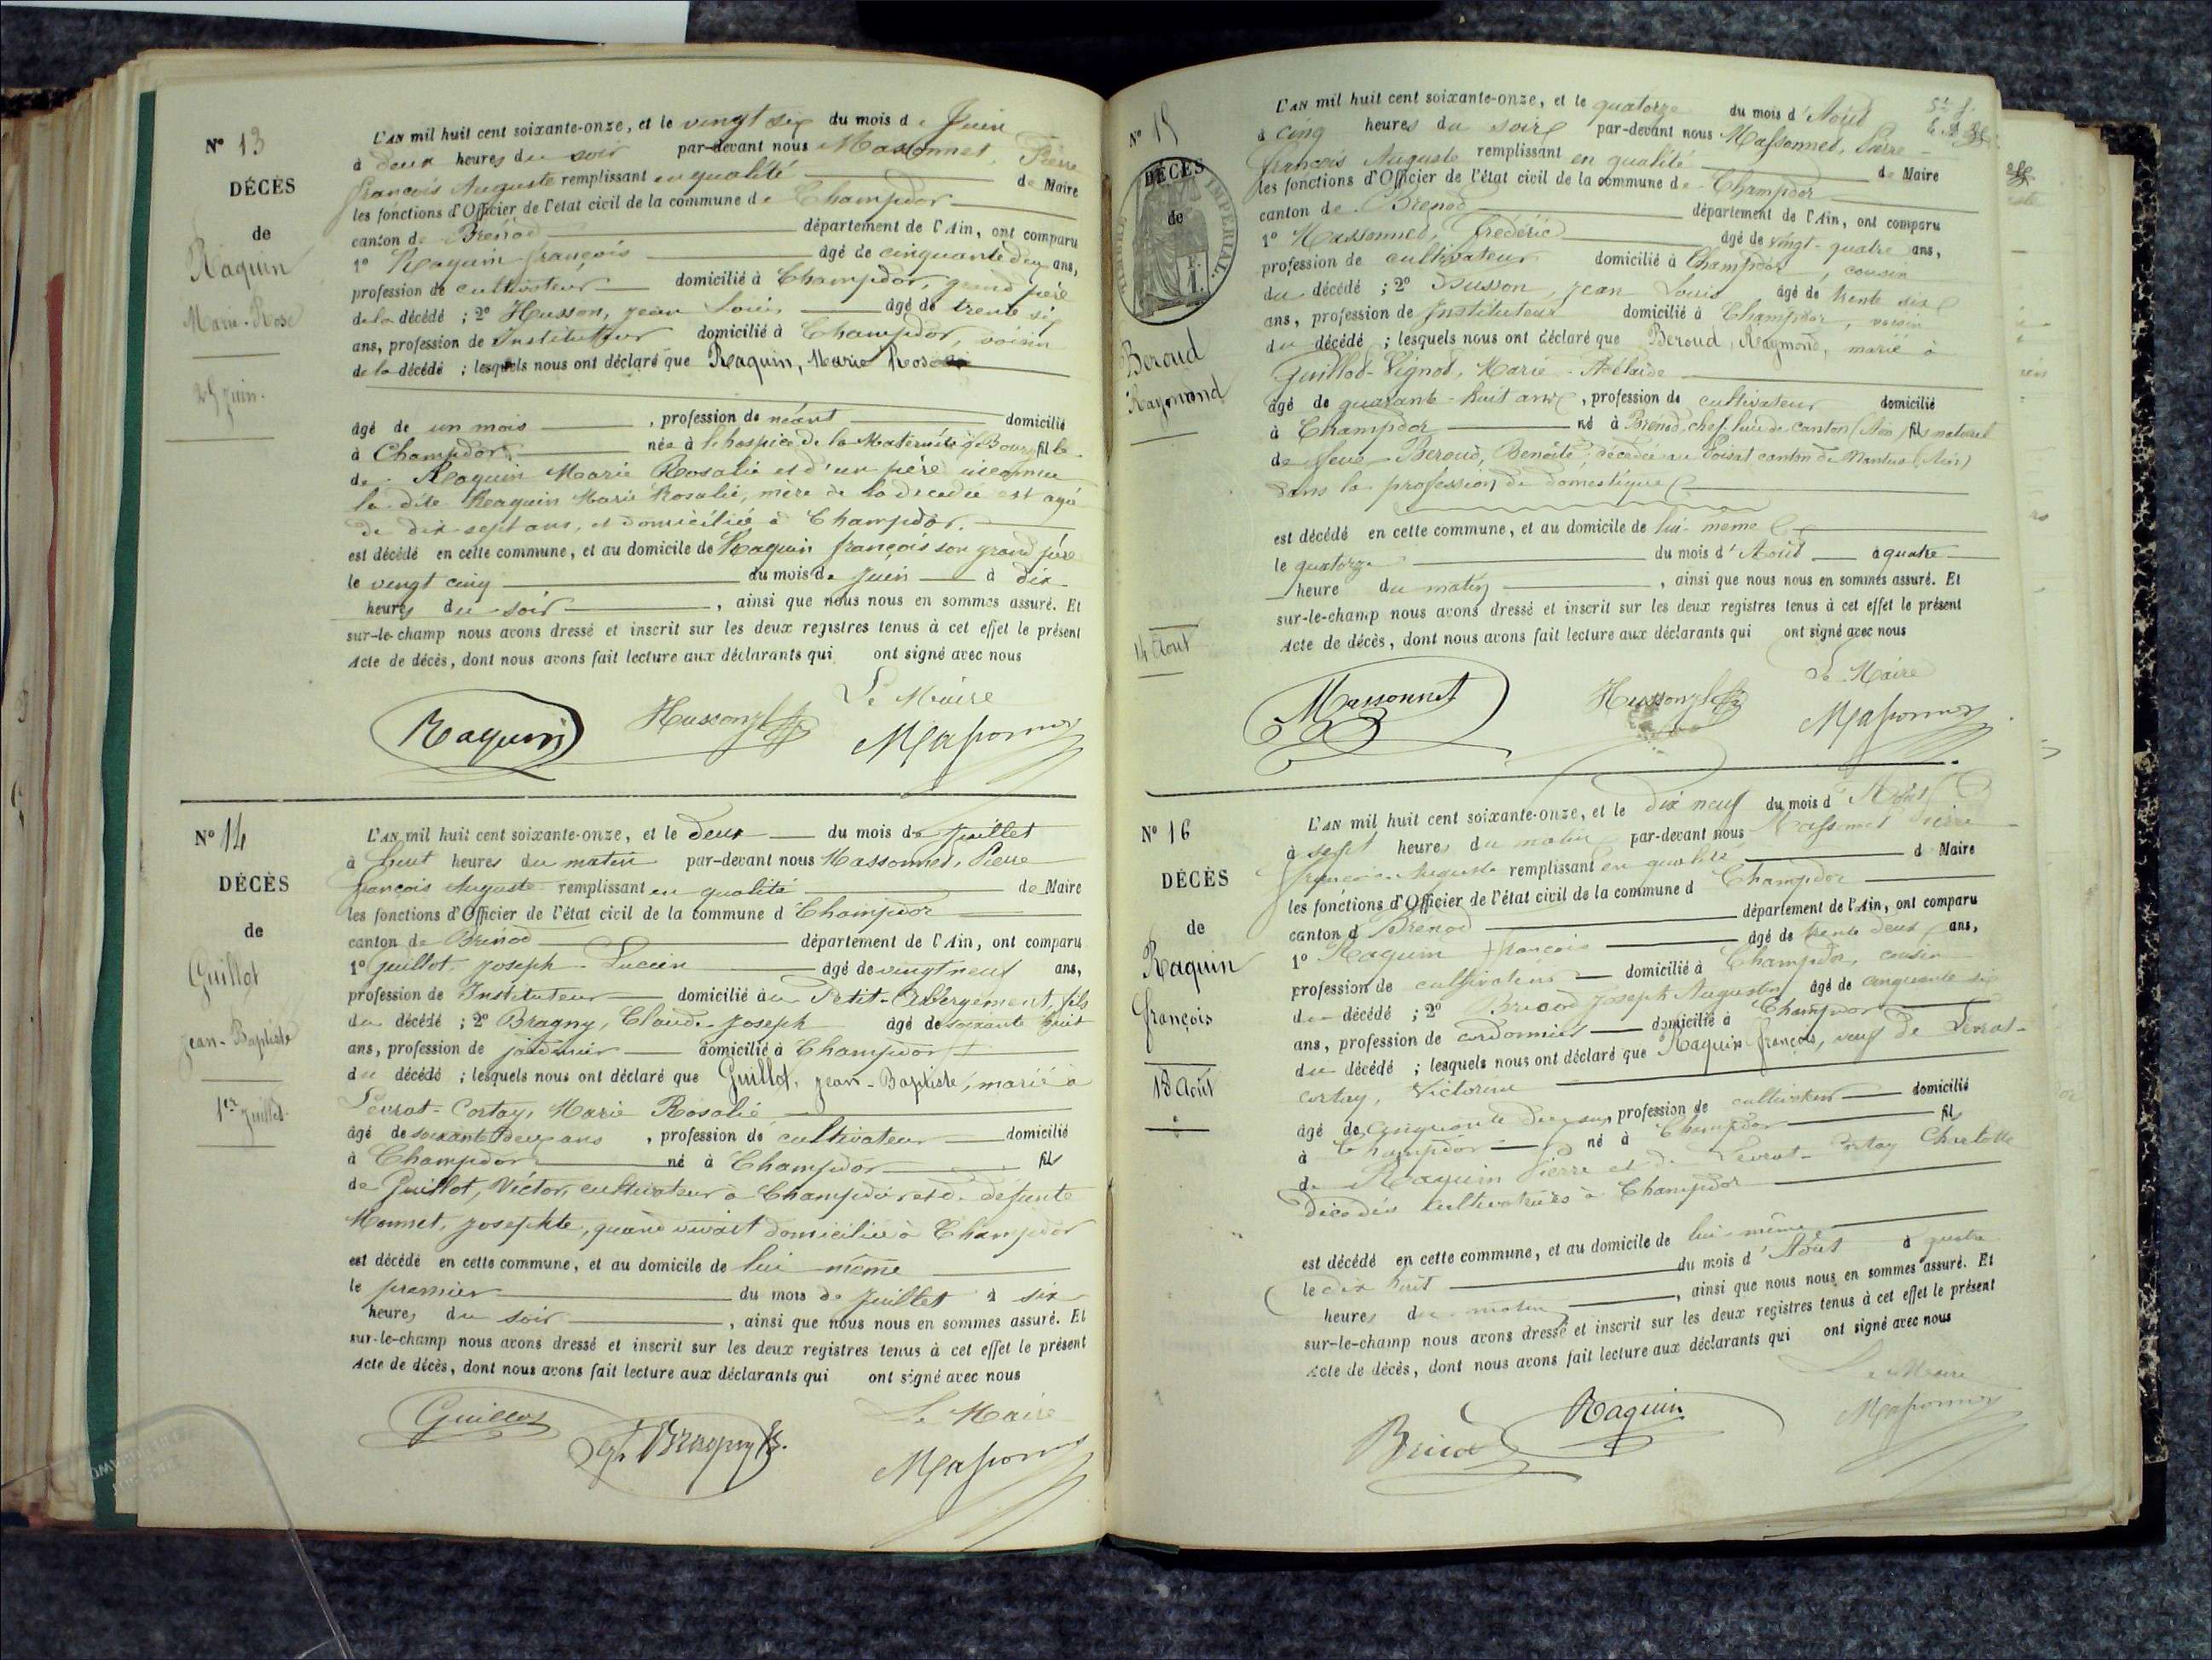 N° 13
DÉCÈS
de
Raquin
Marie-Rose
25 juin.
L'AN mil huit cent soixante-onze, et le vingt six du mois de Juin
à deux heures du soir par-devant nous Massonnet, Pierre
françois Auguste remplissant en qualité de Maire
les fonctions d'Officier de l'état civil de la commune de Champdor
canton de Brénod département de l'Ain, ont comparu
1° Raquin françois âgé de cinquante deux ans,
profession de cultivateur domicilié à Champdor, grand père
de la décédé ; 2° Husson, jean Louis âgé de trente six
ans, profession de Instituteur domicilié à Champdor, voisin
de la décédé ; lesquels nous ont déclaré que Raquin, Marie Rose
âgé de un mois , profession de néant domicilié
à Champdor née à l'hospice de la Maternité de Bourg fille
de Raquin Marie Rosalie et d'un père inconnu
la dite Raquin Marie Rosalie, mère de la décédée est agée
de dix sept ans, et domiciliée à Champdor.
est décédé en cette commune, et au domicile de Raquin françois son grand père
le vingt cinq du mois de juin à dix
heures du soir , ainsi que nous nous en sommes assuré. Et
sur-le-champ nous avons dressé et inscrit sur les deux registres tenus à cet effet le présent
Acte de décès, dont nous avons fait lecture aux déclarants qui ont signé avec nous
Le Maire
Raquin Husson jl Massonnet
N° 14
DÉCÈS
de
Guillot
Jean-Baptiste
1er Juillet.
L'AN mil huit cent soixante-onze, et le deux du mois de juillet
à huit heures du matin par-devant nous Massonnet, Pierre
françois Auguste remplissant en qualité de Maire
les fonctions d'Officier de l'état civil de la commune d Champdor
canton de Brénod département de l'Ain, ont comparu
1° Guillot, joseph-Lucien âgé de vingt neuf ans,
profession de Instituteur domicilié au Petit-Abergement, fils
du décédé ; 2° Bragny, Claude joseph âgé de soixante huit
ans, profession de jardinier domicilié à Champdor
du décédé ; lesquels nous ont déclaré que Guillot, jean-Baptiste, marié à
Levrat-Cortay, Marie Rosalie
âgé de soixante deux ans , profession de cultivateur domicilié
à Champdor né à Champdor fils
de Guillot, Victor, cultivateur à Champdor et de défunte
Monnet, josephte, quand vivait domiciliée à Champdor
est décédé en cette commune, et au domicile de lui même
le premier du mois de juillet à six
heures du soir , ainsi que nous nous en sommes assuré. Et
sur-le-champ nous avons dressé et inscrit sur les deux registres tenus à cet effet le présent
Acte de décès, dont nous avons fait lecture aux déclarants qui ont signé avec nous
Le Maire
Guillot Bragny Massonnet
N° 15
DÉCÈS
de
IMPÉRIAL
Beroud
Raymond
14 Août
L'AN mil huit cent soixante-onze, et le quatorze du mois d'Août
à cinq heures du soir par-devant nous Massonnet, Pierre
françois Auguste remplissant en qualité de Maire
les fonctions d'Officier de l'état civil de la commune de Champdor
canton de Brénod département de l'Ain, ont comparu
1° Massonnet, frédéric âgé de vingt-quatre ans,
profession de cultivateur domicilié à Champdor, cousin
du décédé ; 2° Husson, jean Louis âgé de trente six
ans, profession de Instituteur domicilié à Champdor, voisin
du décédé ; lesquels nous ont déclaré que Beroud, Raymond, marié à
Guillod-Vignod, Marie-Adélaide
âgé de quarante-huit ans , profession de cultivateur domicilié
à Champdor né à Brénod, chef lieu de canton (Ain) fils naturel
de feue Beroud, Benoite, décédée au Poizat canton de Nantua (Ain)
dans la profession de domestique
est décédé en cette commune, et au domicile de lui-même
le quatorze du mois d'Août à quatre
heure du matin , ainsi que nous nous en sommes assuré. Et
sur-le-champ nous avons dressé et inscrit sur les deux registres tenus à cet effet le présent
Acte de décès, dont nous avons fait lecture aux déclarants qui ont signé avec nous
Le Maire
Massonnet Husson jl Massonnet
N° 16
DÉCÈS
de
Raquin
françois
18 Août
L'AN mil huit cent soixante-onze, et le dix neuf du mois d'Août
à sept heures du matin par-devant nous Massonnet Pierre
françois-Auguste remplissant en qualité d Maire
les fonctions d'Officier de l'état civil de la commune d Champdor
canton d Brénod département de l'Ain, ont comparu
1° Raquin françois âgé de trente deux ans,
profession de cultivateur domicilié à Champdor, cousin
du décédé ; 2° Bricod joseph Augustin âgé de cinquante six
ans, profession de cordonnier domicilié à Champdor
du décédé ; lesquels nous ont déclaré que Raquin françois, veuf de Levrat-
cortay, Victorine
âgé de cinquante deux ans, profession de cultivateur domicilié
à Champdor né à Champdor fils
de Raquin Pierre et de Levrat-Cortay Charlotte
décédés cultivateurs à Champdor
est décédé en cette commune, et au domicile de lui-même
le dix huit du mois d'Août à quatre
heures du matin , ainsi que nous nous en sommes assuré. Et
sur-le-champ nous avons dressé et inscrit sur les deux registres tenus à cet effet le présent
Acte de décès, dont nous avons fait lecture aux déclarants qui ont signé avec nous
Le Maire
Bricod Raquin Massonnet